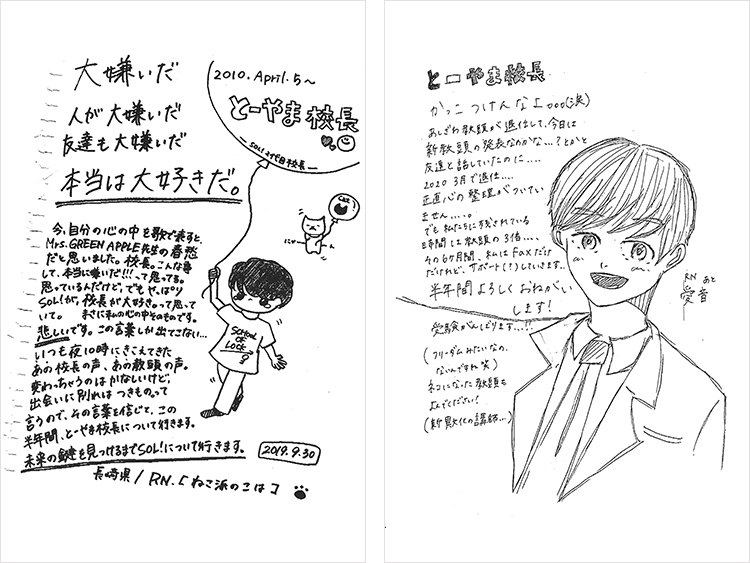 大嫌いだ
人が大嫌いだ
友達も大嫌いだ
本当は大好きだ。
2010.April.5~
とーやま校長
SOL!2代目校長
今、自分の心の中を歌で表すと、
Mrs.GREEN APPLE先生の春愁
だと思いました。校長。こんな事
して、本当に嫌いだ!!!って思ってる。
思っているんだけど、でもやっぱり
SOL!が、校長が大好き。って思って
いて。まさに私の心の中そのものです。
悲しいです。この言葉しか出てこない…
いつも夜10時にきこえてきた
あの校長の声、あの教頭の声。
変わっちゃうのはかなしいけど、
出会いに別れはつきもの。って
言うので、その言葉を信じて、この
半年間、とーやま校長について行きます。
未来の鍵を見つけるまでSOL!について行きます。
2019.9.30
長崎県/RN.「ねこ派のこはこ」
SCHOOL
OF
LOCK!
にゃーん
とーやま校長
かっこつけんなよooo(涙)
あしざわ教頭が退任して、今日は
新教頭の発表なのかな…?とかと
友達と話していたのに....
2020 3月で退任....
正直心の整理がついてい
ません....。
でも私たちに残されている
時間は教頭の3倍....、
その6ヶ月間、私はFaxだけ
だけれど、サポート(?)していきます..
半年間よろしくおねがい
します!
受験がんばります...!!
(フリーダムみたいなの、
ないんですね 笑)
ネコになった教頭も
よんでください!
(新 獣化の講師...)
RN
愛音
あと